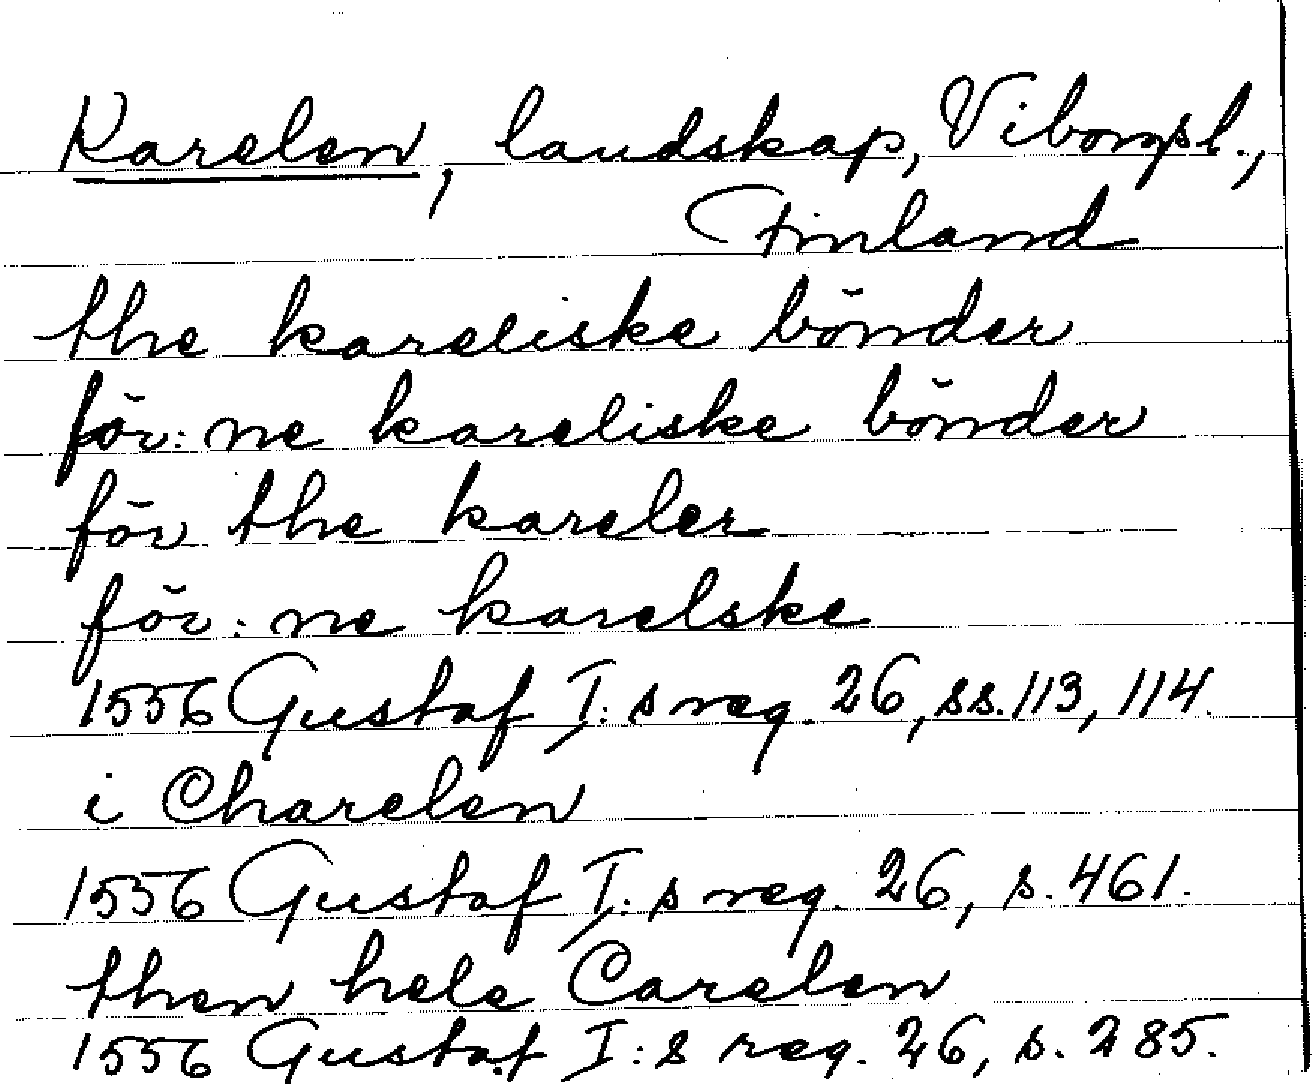 Karelen, landskap, Viborgsl.,
Finland
the kareliske bönder
för: ne kareliske bönder
för the kareler
för: ne karelske
1556 Gustaf I: s reg. 26, ss. 113, 114.
i Charelen
1556 Gustaf I: s reg. 26, s. 461.
then hele Carelen
1556 Gustaf I: s reg. 26, s. 285.